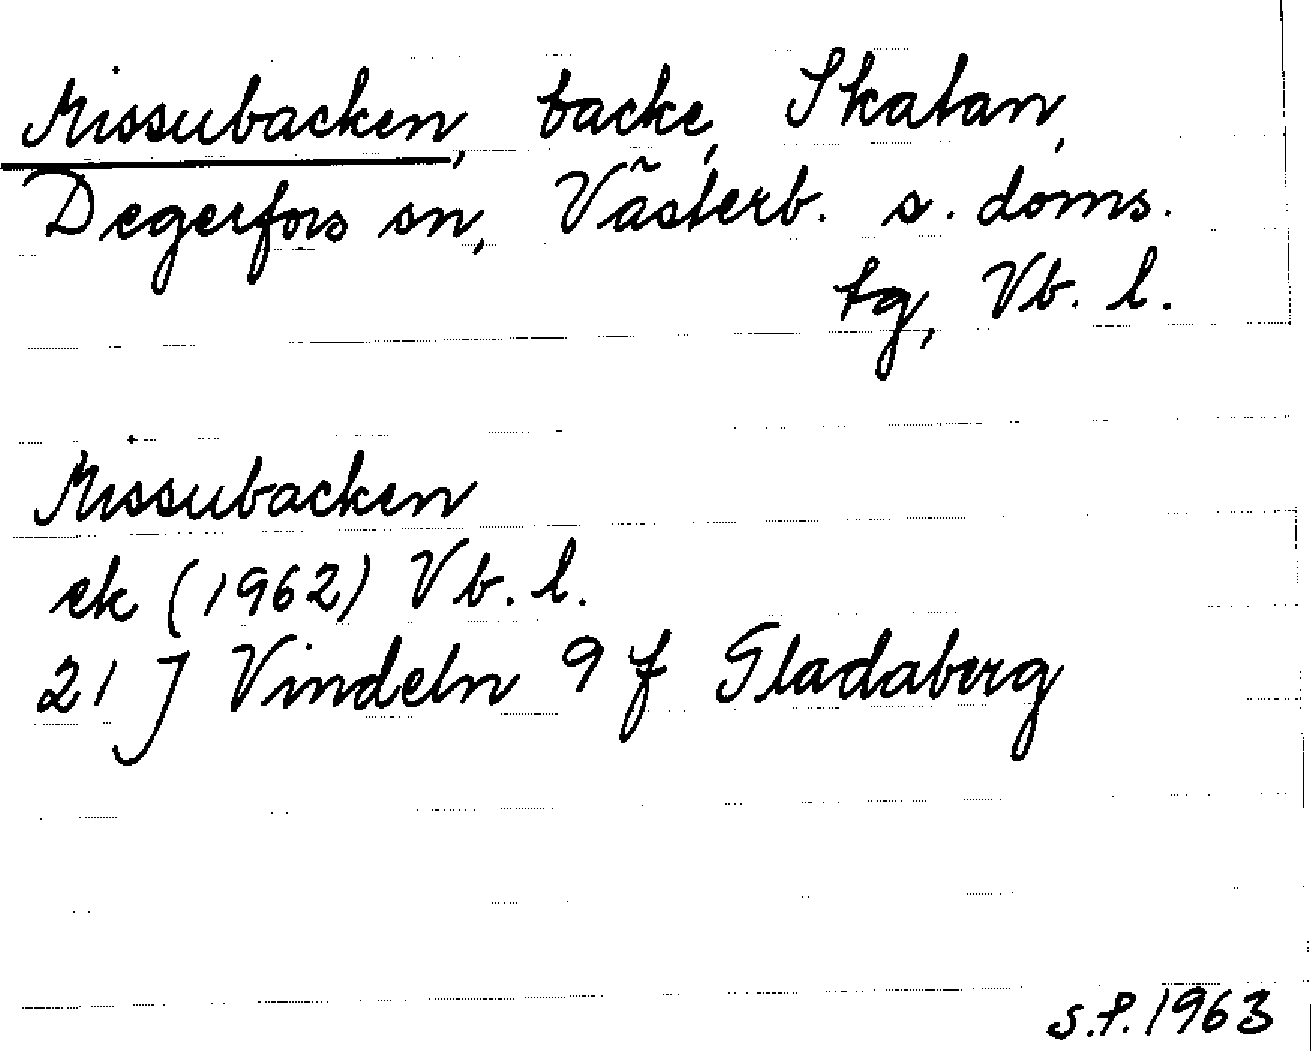 Missubacken, backe, Skatan,
Degerfors sn, Västerb. s. doms.
tg, Vb. l.
Missubacken
ek (1962) Vb. l.
21 J Vindeln 9 f Gladaberg
S.P. 1963